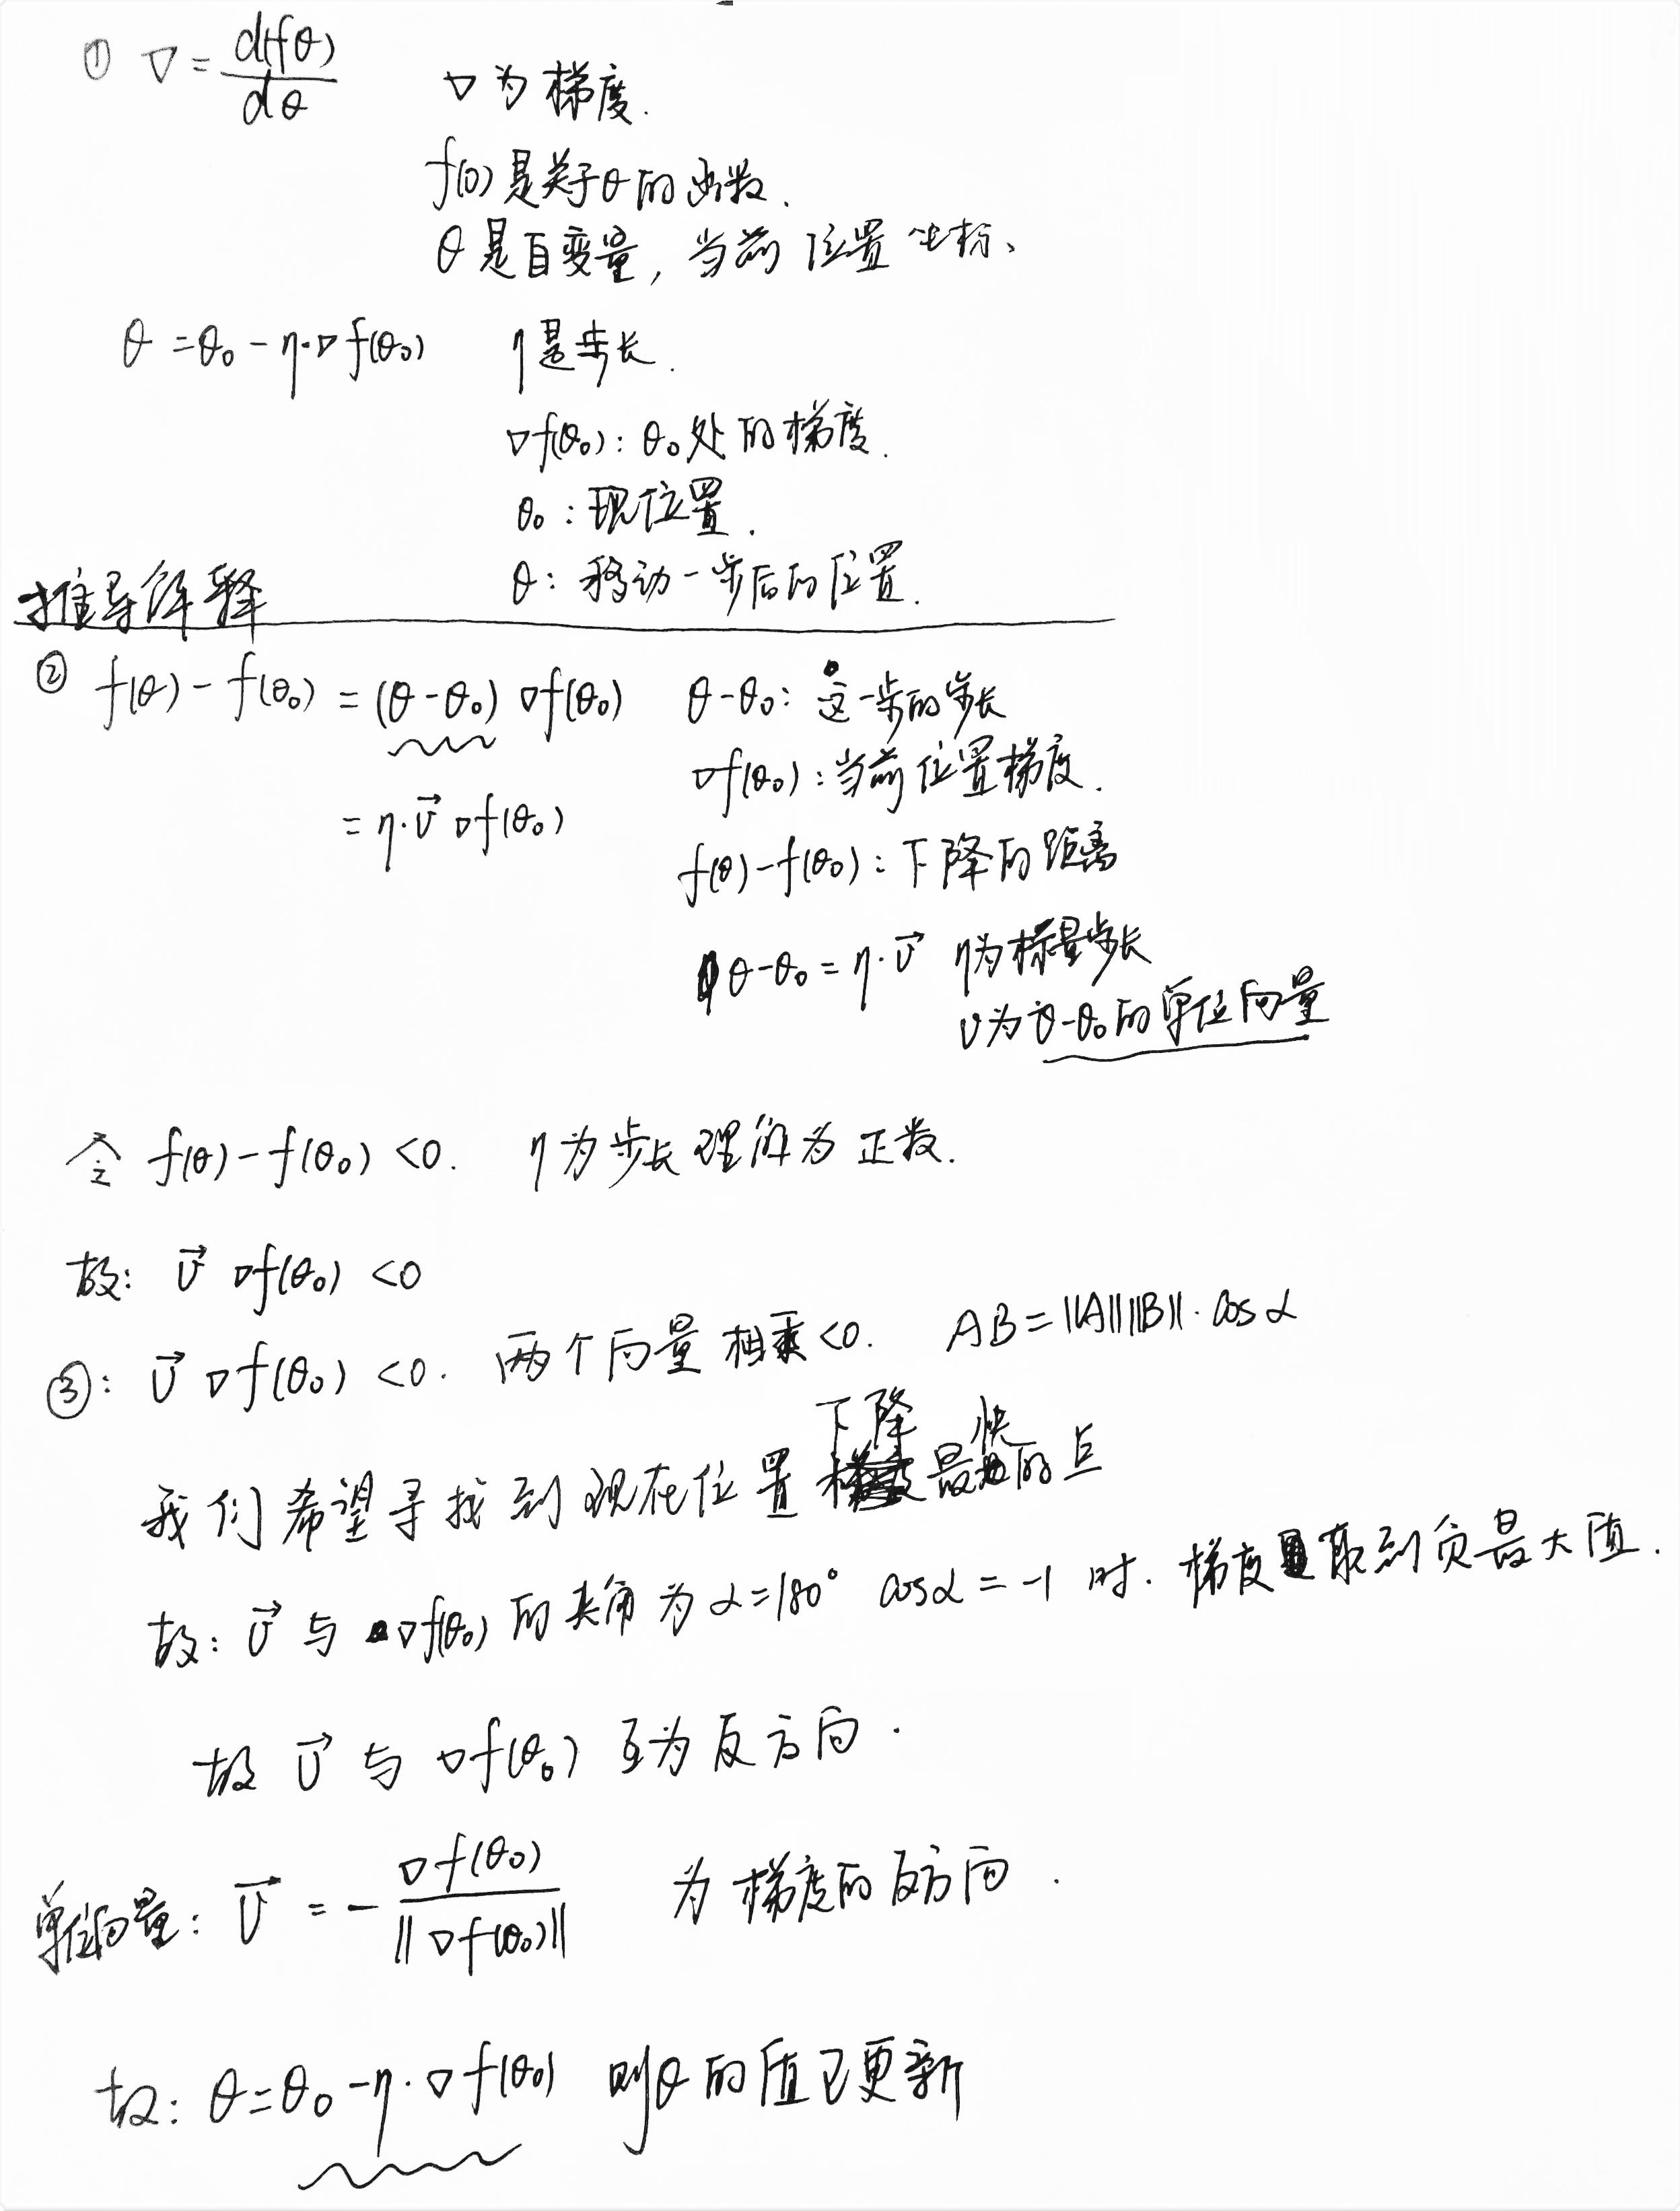 ① ▽ = d(fθ)/dθ ▽为梯度.
f(θ)是关于θ的函数.
θ是自变量, 当前位置坐标、
θ = θ₀ - η·▽f(θ₀) η是步长.
▽f(θ₀): θ₀处的梯度.
θ₀: 现位置.
θ: 移动一步后的位置.
推导解释
② f(θ) - f(θ₀) = (θ-θ₀) ▽f(θ₀) θ-θ₀: 这一步的步长
▽f(θ₀): 当前位置梯度.
= η·v⃗ ▽f(θ₀)
f(θ)-f(θ₀): 下降的距离
θ-θ₀ = η·v⃗ η为标量步长
v为θ-θ₀的单位向量
令 f(θ)-f(θ₀) <0. η为步长理解为正数.
故: v⃗ ▽f(θ₀) <0
③: v⃗ ▽f(θ₀) <0. 两个向量相乘<0. AB=||A||||B||·cosα
我们希望寻找到现在位置下降最快的点
故: v⃗与▽f(θ₀)的夹角为α=180° cosα=-1时. 梯度取到负最大值.
故 v⃗ 与 ▽f(θ₀) 互为反方向.
单位向量: v⃗ = - ▽f(θ₀)/||▽f(θ₀)|| 为梯度的反方向.
故: θ=θ₀-η·▽f(θ₀) 则θ的值已更新